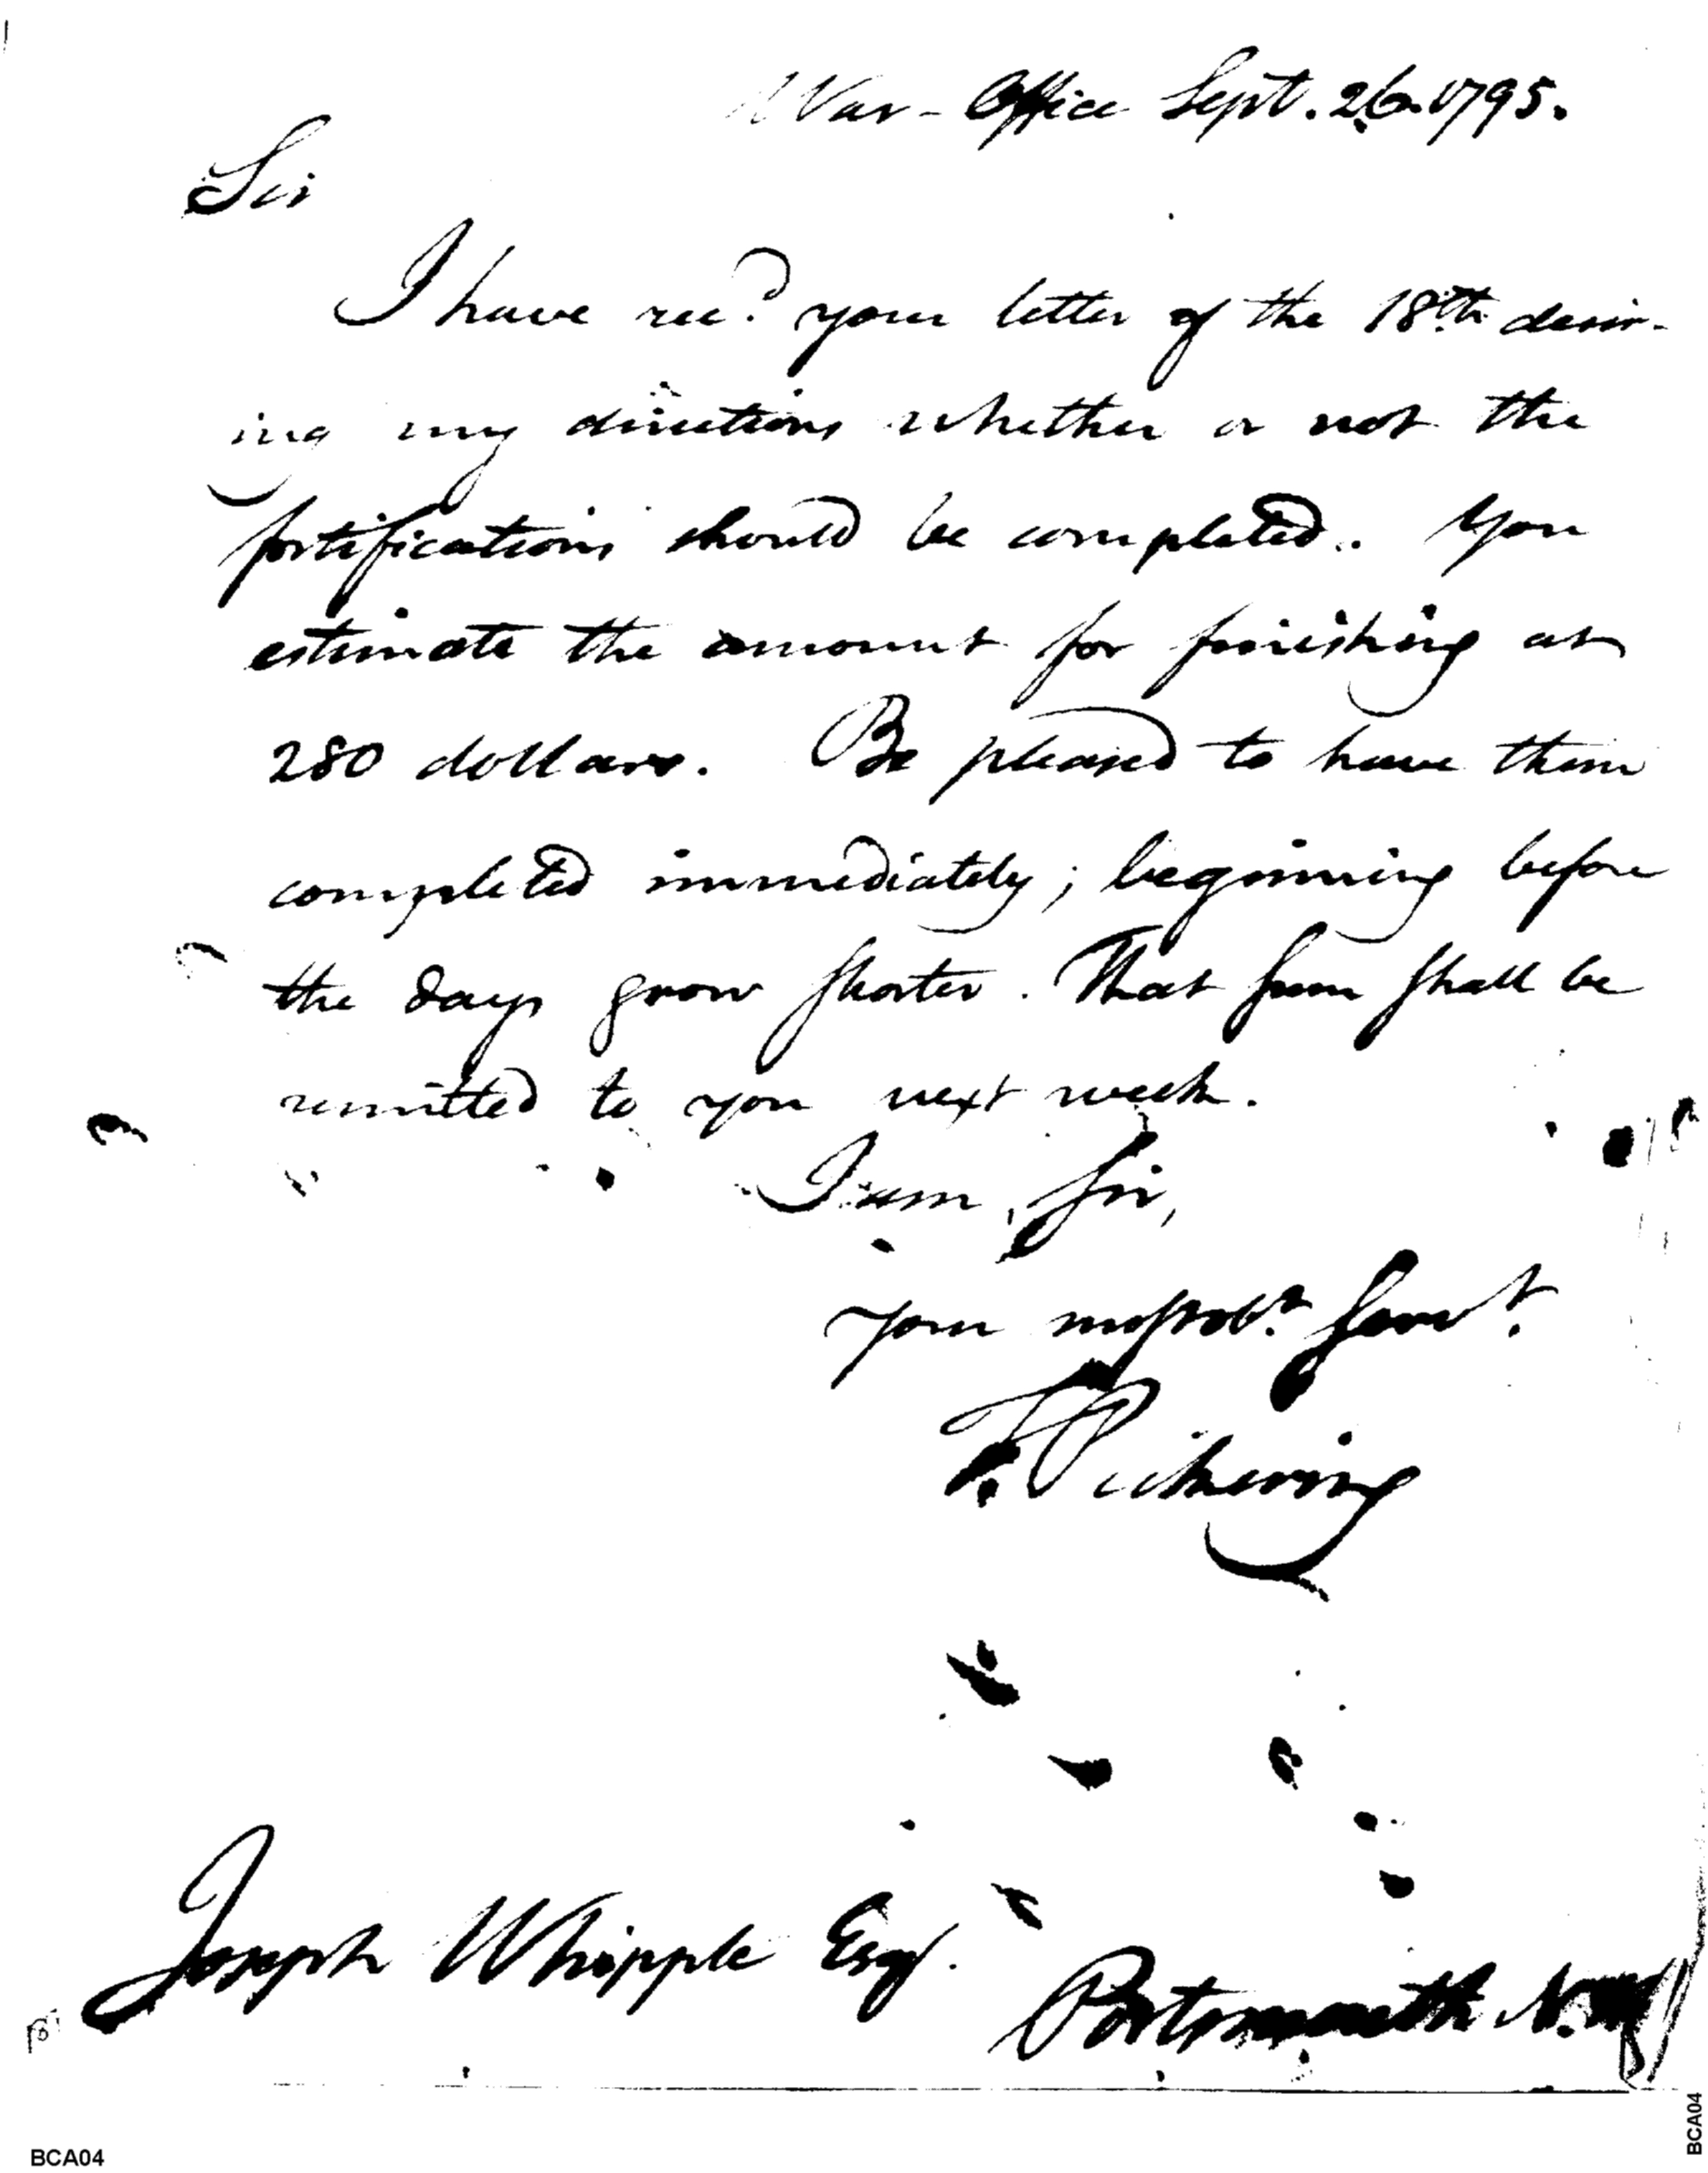 War-Office Sept. 26. 1795.
Sir
I have recd. your letter of the 18th. desir-
ing my directions whether or not the
fortifications should be completed. You
estimate the amount for finishing at
280 dollars. Be pleased to have them
completed immediately; beginning before
the days grow shorter. That sum shall be
remitted to you next week.
I am, sir,
your most obt. servt.
T. Pickering
Joseph Whipple Esqr.
Portsmouth N.
BCA04
BCA04